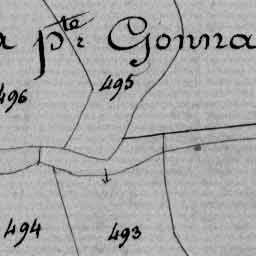 a p.te Gonna
496
495
494
493